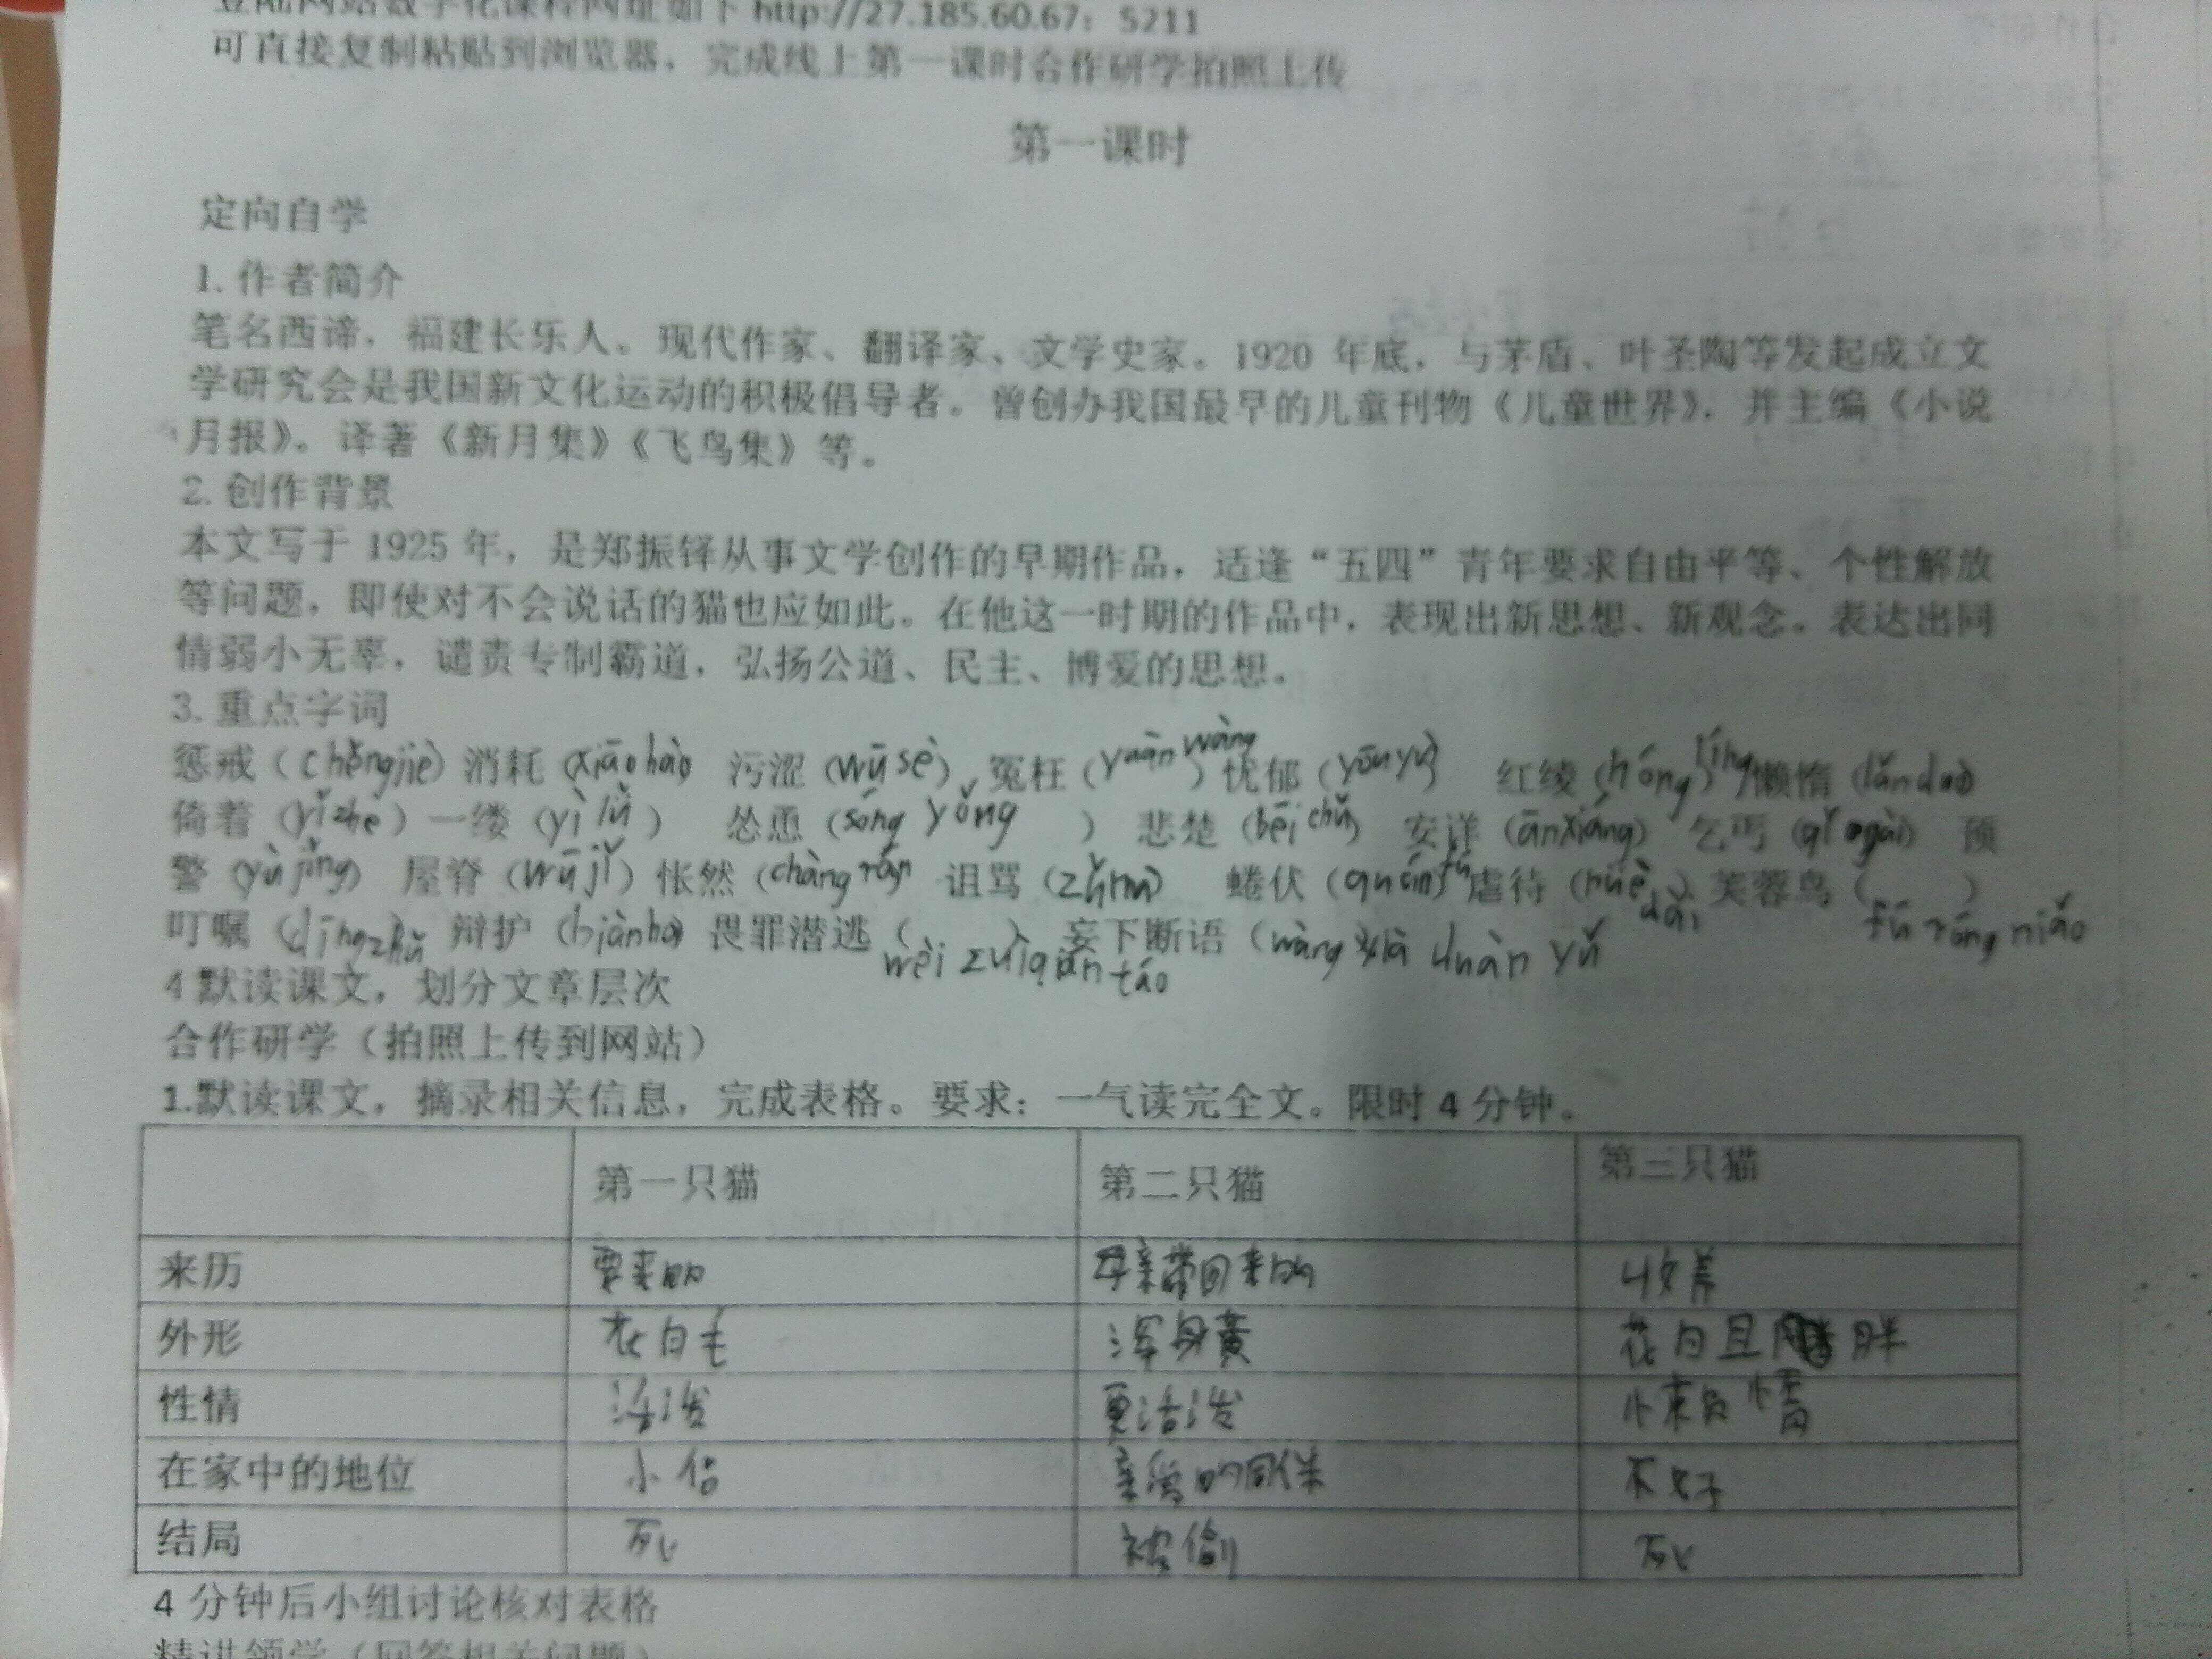 登陆网站数字化课程网址如下 http://27.185.60.67：5211
可直接复制粘贴到浏览器，完成线上第一课时合作研学拍照上传
第一课时
定向自学
1. 作者简介
笔名西谛，福建长乐人。现代作家、翻译家、文学史家。1920 年底，与茅盾、叶圣陶等发起成立文
学研究会是我国新文化运动的积极倡导者。曾创办我国最早的儿童刊物《儿童世界》，并主编《小说
月报》。译著《新月集》《飞鸟集》等。
2. 创作背景
本文写于 1925 年，是郑振铎从事文学创作的早期作品，适逢“五四”青年要求自由平等、个性解放
等问题，即使对不会说话的猫也应如此。在他这一时期的作品中，表现出新思想、新观念。表达出同
情弱小无辜，谴责专制霸道，弘扬公道、民主、博爱的思想。
3. 重点字词
惩戒（chěngjiè）消耗（xiāohào） 污涩（wūsè） 冤枉（yuānwàng）忧郁（yōuyù） 红绫（hónglíng）懒惰（lǎnduò）
倚着（yǐzhe）一缕（yìlǚ） 怂恿（sóngyǒng） 悲楚（bēichǔ） 安详（ānxiáng） 乞丐（qǐgài） 预
警（yùjǐng） 屋脊（wūjǐ）怅然（chàngrán） 诅骂（zǔmà） 蜷伏（quánfú）虐待（nüèdài）芙蓉鸟（fúróngniǎo）
叮嘱（dīngzhǔ） 辩护（biànhù）畏罪潜逃（wèizuìqiántáo） 妄下断语（wàngxiàduànyǔ
4 默读课文，划分文章层次
合作研学（拍照上传到网站）
1.默读课文，摘录相关信息，完成表格。要求：一气读完全文。限时 4 分钟。
第一只猫 第二只猫 第三只猫
来历 要来的 母亲带回来的 收养
外形 花白毛 浑身黄 花白且 胖
性情 活泼 更活泼 懒惰
在家中的地位 小侣 亲爱的同伴 不好
结局 死 被偷 死
4 分钟后小组讨论核对表格
精讲领学（回答相关问题）